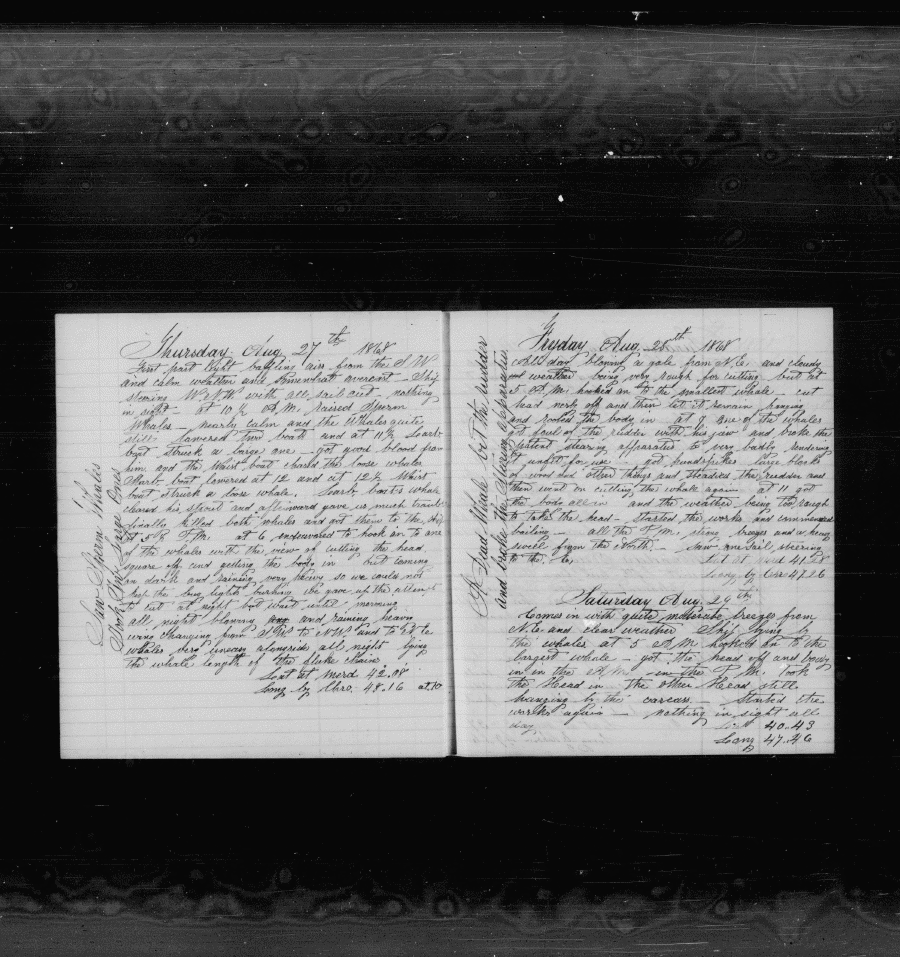 Thursday Aug. 27th 1868
First part light baffling airs from the S W
and calm weather and somewhat overcast - Ship
steering W N W with all sail out - nothing
in sight - at 10 ½ A.M. raised Sperm
Whales - nearly calm and the Whales quite
still lowered two boats and at 11 ½ Larb
boat struck a large one - got good blood from
him and the Waist boat chased the loose whales
Starb. boat lowered at 12 and at 12 ½ Waist
boat struck a loose whale. Larb. boat's whale
cleared his spout and afterward gave us much trouble
finally killed both whales and got them to the ship
at 5 ½ P.M. at 6 endeavored to hook on to one
of the whales with the view of cutting the head
square off and getting the body in but coming
on dark and raining very heavy so we could not
keep the bug lights burning we gave up the attempt
to cut at night but wait until morning
all night blowing and raining heavy
wind changing from S W to N W and to N E
whales very uneasy alongside all night lying
the whale length of the fluke chain
Lat at Merd 42.08
Long by Chro. 48.16 at
Saw Sperm Whales
Took Two Large Ones
Fryday Aug. 28th 1868
This day blowing a gale from N.E. and cloudy
weather being very rough for cutting but at
5 A.M. hooked on to the smallest whale - cut
head off and then let it remain hanging
and rooled the body in at one of the whales
foul of the rudder with his jaw and broke the
patent stearing apparatus so very badly rendering
it unfit for use got handspikes large blocks
of wood and other things and steadied the rudder and
then went on cutting the whale again at 11 got
the body all in and the weather being too rough
to take the head - started the works and commenced
boiling - all the P.M. strong breezes and a heavy
swell from the North - Saw one Sail steering
to the E.
Lat at Merd 41.28
Long by Chro 47.26
A Dead Whale bit the rudder
and broke the stearing apperatus
Saturday Aug. 29th
Comes in with quite moderate breezes from
N.E. and clear weather Ship lying by
the whales at 5 A.M. hooked on to the
largest whale - got the head off and body
in in the A.M. in the P.M. took
the Head in the other Head still
hanging by the carcass - Started the
works again - nothing in sight all
day
Lat 40.43
Long 47.46